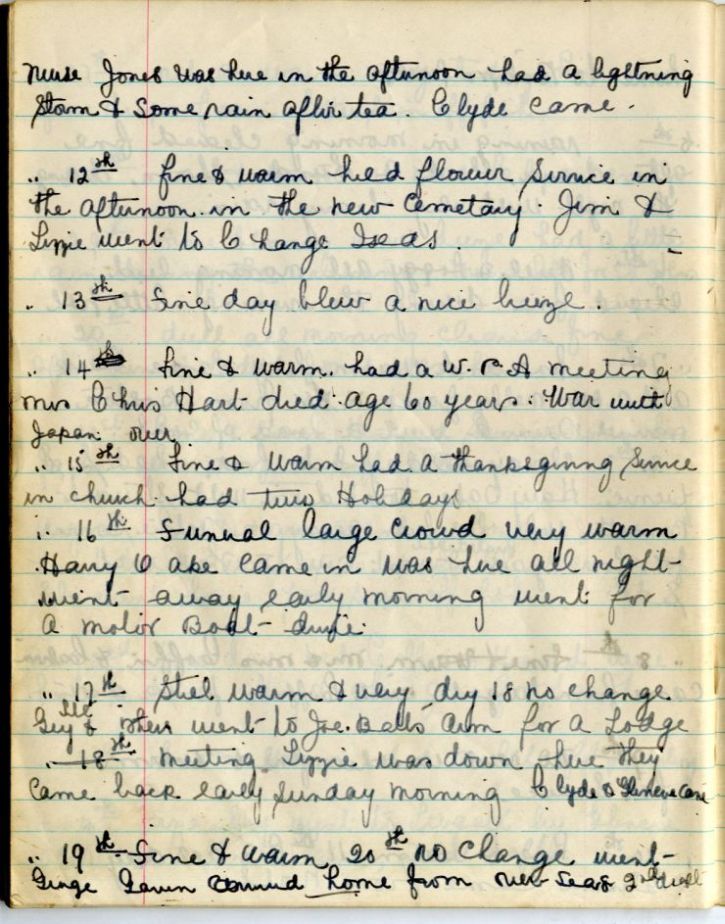 Nurse Jones was here in the afternoon had a lightning
Storm & some rain after tea. Clyde came.
" 12th fine & warm held flower Service in
the afternoon in the new Cemetary. Jim &
Lizzie went to Change Iseas.
" 13th Fine day blew a nice breeze.
" 14th fine & warm. had a W. P A meeting
Mrs Chris Hart died age 60 years. War with
Japan over
" 15th Fine & warm had a thanksgiving Service
in church had two Holidays
" 16th Funral large crowd very warm
Harry Oake came in was here all night
went away early morning went for
a motor Boat drive
" 17th Stil warm & very dry 18 no change
& others went to Joe Batts Arm for a Lodge
" 18th meeting Lizzie was down here they
came back early Sunday morning Clyde & Geneve came
" 19th Fine & warm 20th no change went
Gavin home from over Seas 2nd